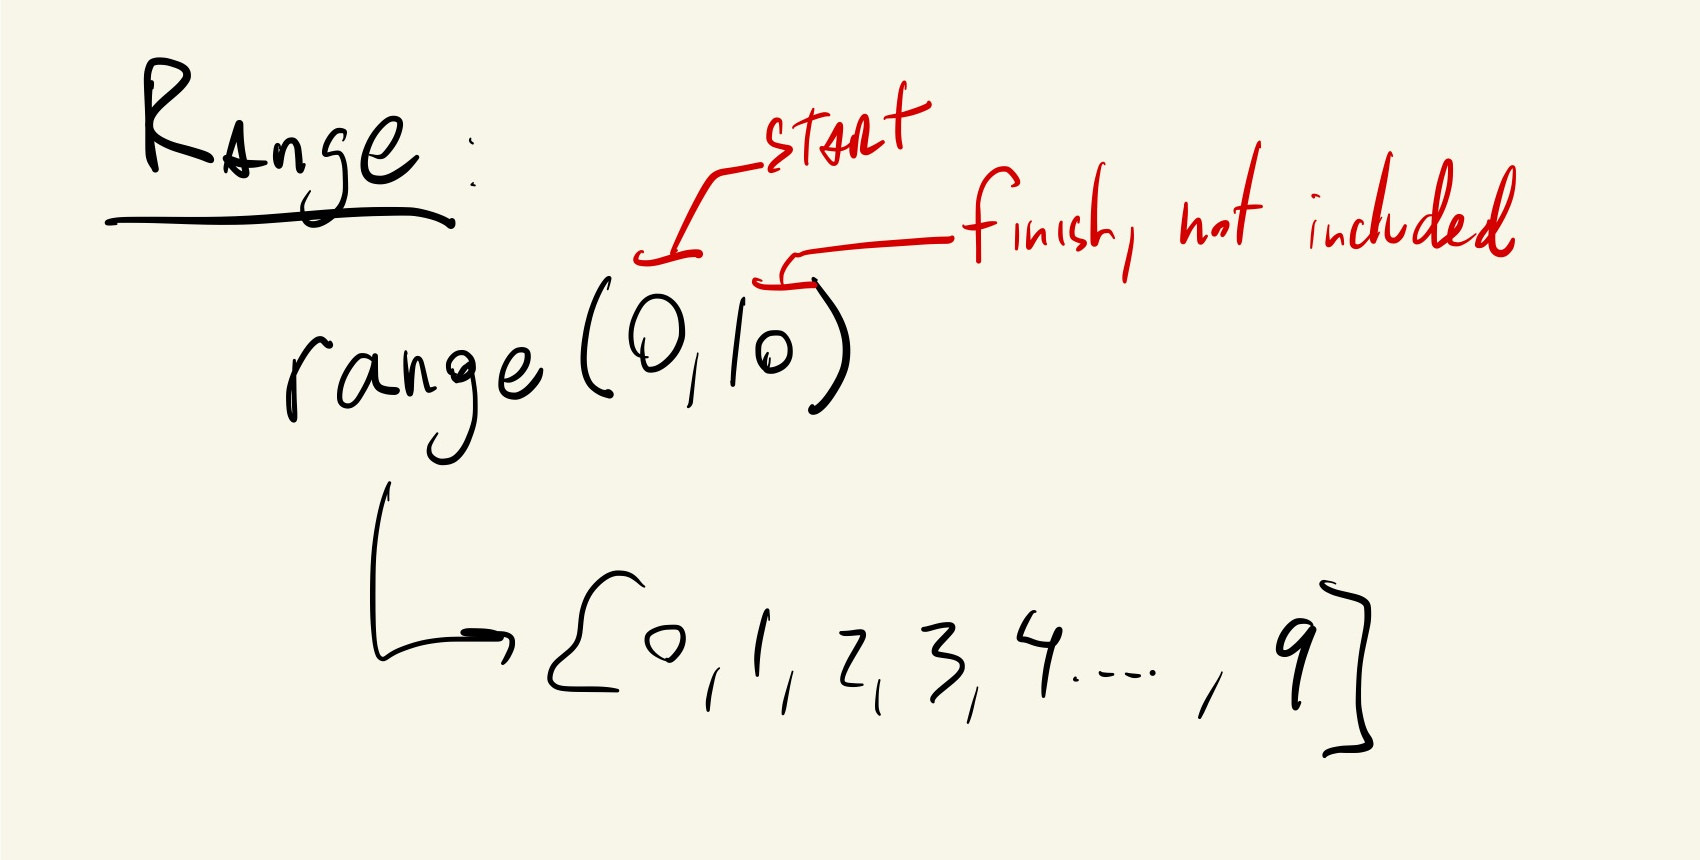 Range:
start
finish, not included
range (0,10)
[0, 1, 2, 3, 4...., 9]